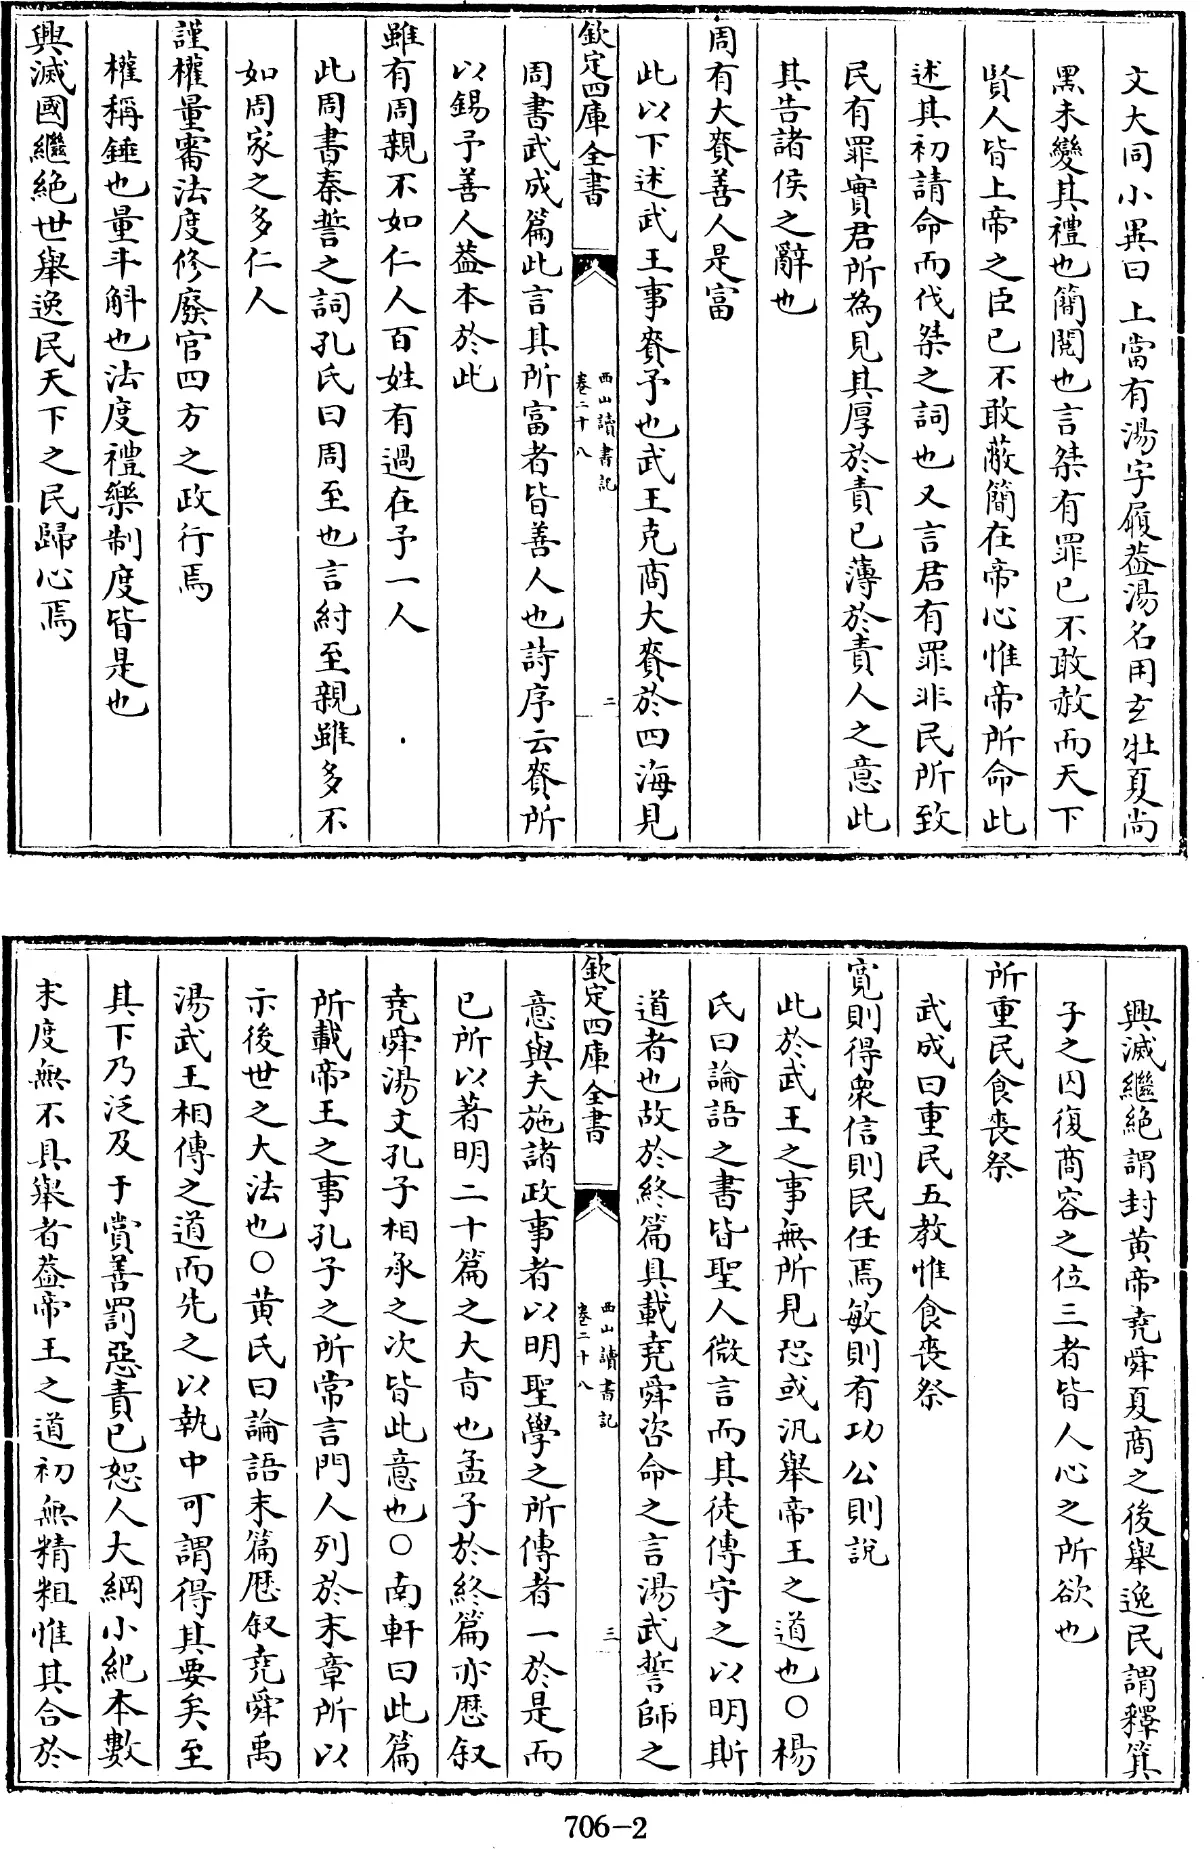 文大同小異曰上當有湯字履葢湯名用玄牡夏尚
黑未變其禮也簡閱也言桀有罪已不敢赦而天下
賢人皆上帝之臣已不敢蔽簡在帝心惟帝所命此
述其初請命而伐桀之詞也又言君有罪非民所致
民有罪實君所為見其厚於責已薄於責人之意此
其告諸侯之辭也
周有大賚善人是富
此以下述武王事賚予也武王克商大賚於四海見
欽定四庫全書
西山讀書記
卷二十八
二
周書武成篇此言其所富者皆善人也詩序云賚所
以錫予善人葢本於此
雖有周親不如仁人百姓有過在予一人
此周書泰誓之詞孔氏曰周至也言紂至親雖多不
如周家之多仁人
謹權量審法度修廢官四方之政行焉
權稱錘也量斗斛也法度禮樂制度皆是也
興滅國繼絶世舉逸民天下之民歸心焉
興滅繼絶謂封黄帝堯舜夏商之後舉逸民謂釋箕
子之囚復商容之位三者皆人心之所欲也
所重民食喪祭
武成曰重民五教惟食喪祭
寛則得衆信則民任焉敏則有功公則説
此於武王之事無所見恐或汎舉帝王之道也○楊
氏曰論語之書皆聖人微言而其徒傳守之以明斯
道者也故於終篇具載堯舜咨命之言湯武誓師之
欽定四庫全書
西山讀書記
卷二十八
三
意與夫施諸政事者以明聖學之所傳者一於是而
已所以著明二十篇之大旨也孟子於終篇亦歴叙
堯舜湯文孔子相承之次皆此意也○南軒曰此篇
所載帝王之事孔子之所常言門人列於末章所以
示後世之大法也○黄氏曰論語末篇歴叙堯舜禹
湯武王相傳之道而先之以執中可謂得其要矣至
其下乃泛及于賞善罰惡責已恕人大綱小紀本數
末度無不具舉者葢帝王之道初無精粗惟其合於
706-2